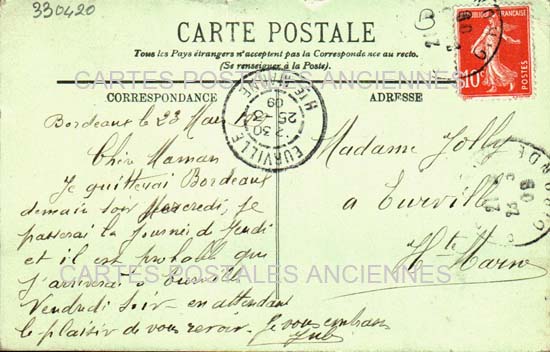 330420
CARTE POSTALE
Tous les Pays étrangers n'acceptent pas la Correspondance au recto.
(Se renseigner à la Poste).
RÉPUBLIQUE FRANÇAISE
10c
POSTES
CARTES POSTALES ANCIENNES
CORRESPONDANCE
ADRESSE
Hte MARNE
7 30
25 - 3
09
EURVILLE
Bordeaux le 23 Mars
Chère Maman
Je quitterai Bordeaux
demain soir Mercredi, je
passerai la Journée de Jeudi
et il est probable que
j'arriverai à Eurville
Vendredi Soir - en attendant
le plaisir de vous revoir. Je vous embrasse
Madame Jolly
à Eurville
Hte Marne
CARTES POSTALES ANCIENNES